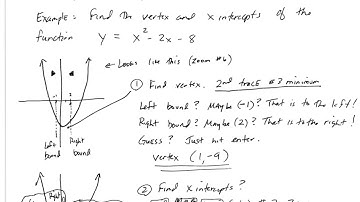 Example: Find the vertex and x intercepts of the
function y = x² - 2x - 8
← Looks like this (zoom #6)
① Find vertex. 2nd trace #3 minimum
Left bound? Maybe (-1)? That is to the left!
Right bound? Maybe (2)? That is to the right!
Guess? Just hit enter.
Vertex (1,-9)
Left bound
Right bound
② Find x intercepts?